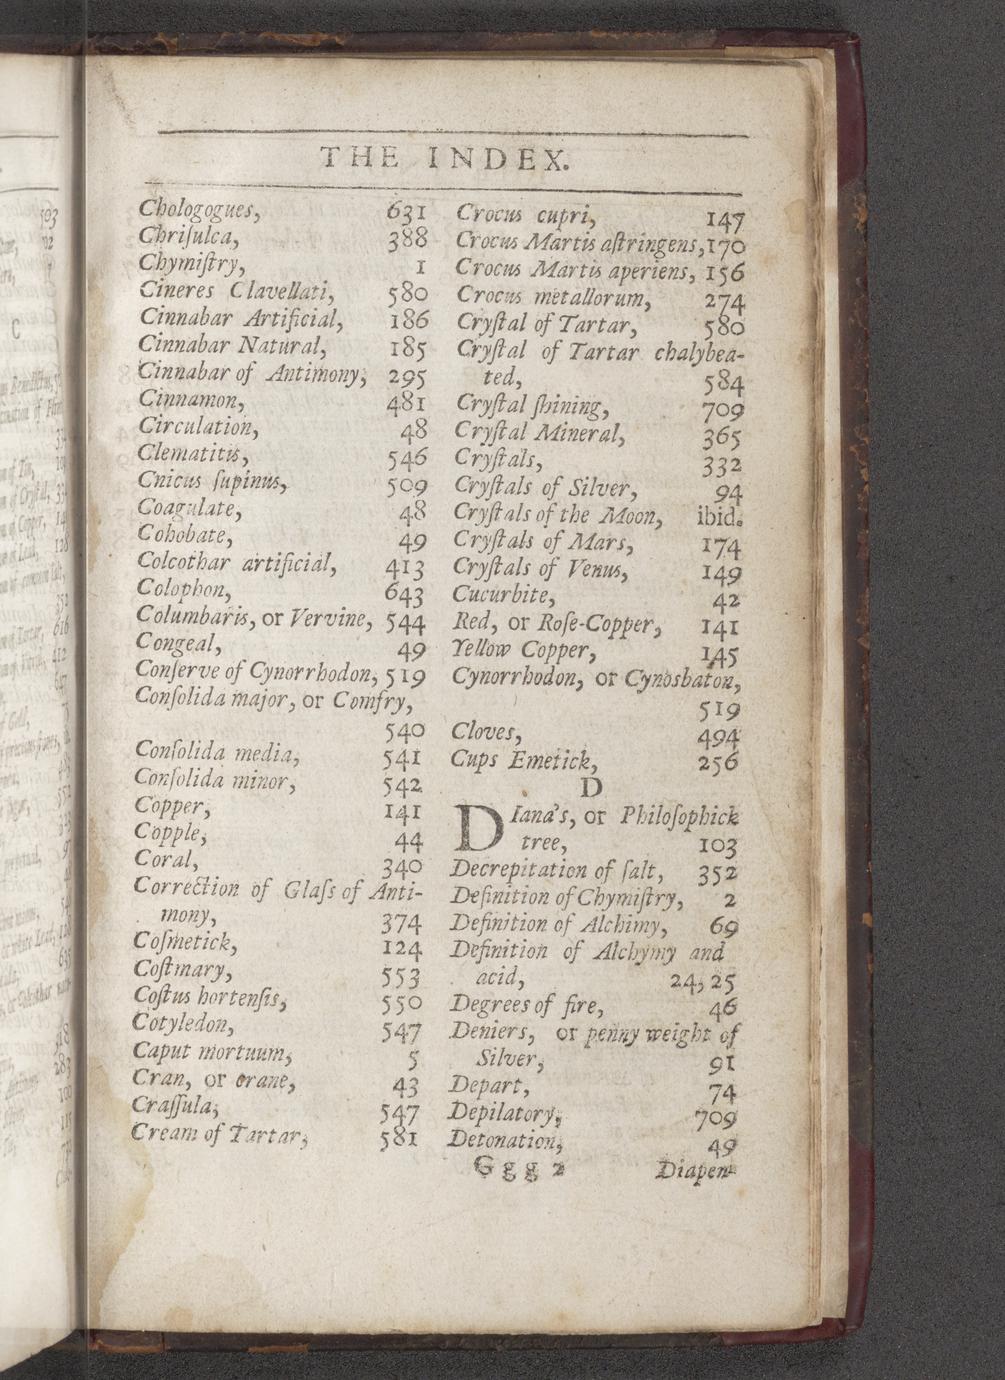 THE INDEX.
Chologogues, 631
Chriſulca, 388
Chymiſtry, 1
Cineres Clavellati, 580
Cinnabar Artificial, 186
Cinnabar Natural, 185
Cinnabar of Antimony, 295
Cinnamon, 481
Circulation, 48
Clematitis, 546
Cnicus ſupinus, 509
Coagulate, 48
Cohobate, 49
Colcothar artificial, 413
Colophon, 643
Columbaris, or Vervine, 544
Congeal, 49
Conſerve of Cynorrhodon, 519
Conſolida major, or Comfry,
540
Conſolida media, 541
Conſolida minor, 542
Copper, 141
Copple, 44
Coral, 340
Correction of Glaſs of Anti-
mony, 374
Coſmetick, 124
Coſtmary, 553
Coſtus hortenſis, 550
Cotyledon, 547
Caput mortuum, 5
Cran, or crane, 43
Craſſula, 547
Cream of Tartar, 581
Crocus cupri, 147
Crocus Martis aſtringens, 170
Crocus Martis aperiens, 156
Crocus metallorum, 274
Cryſtal of Tartar, 580
Cryſtal of Tartar chalybea-
ted, 584
Cryſtal ſhining, 709
Cryſtal Mineral, 365
Cryſtals, 332
Cryſtals of Silver, 94
Cryſtals of the Moon, ibid.
Cryſtals of Mars, 174
Cryſtals of Venus, 149
Cucurbite, 42
Red, or Roſe-Copper, 141
Yellow Copper, 145
Cynorrhodon, or Cynosbaton,
519
Cloves, 494
Cups Emetick, 256
D
DIana's, or Philoſophick
tree, 103
Decrepitation of ſalt, 352
Definition of Chymiſtry, 2
Definition of Alchimy, 69
Definition of Alchymy and
acid, 24, 25
Degrees of fire, 46
Deniers, or penny weight of
Silver, 91
Depart, 74
Depilatory, 709
Detonation, 49
Gggg 2 Diapen-